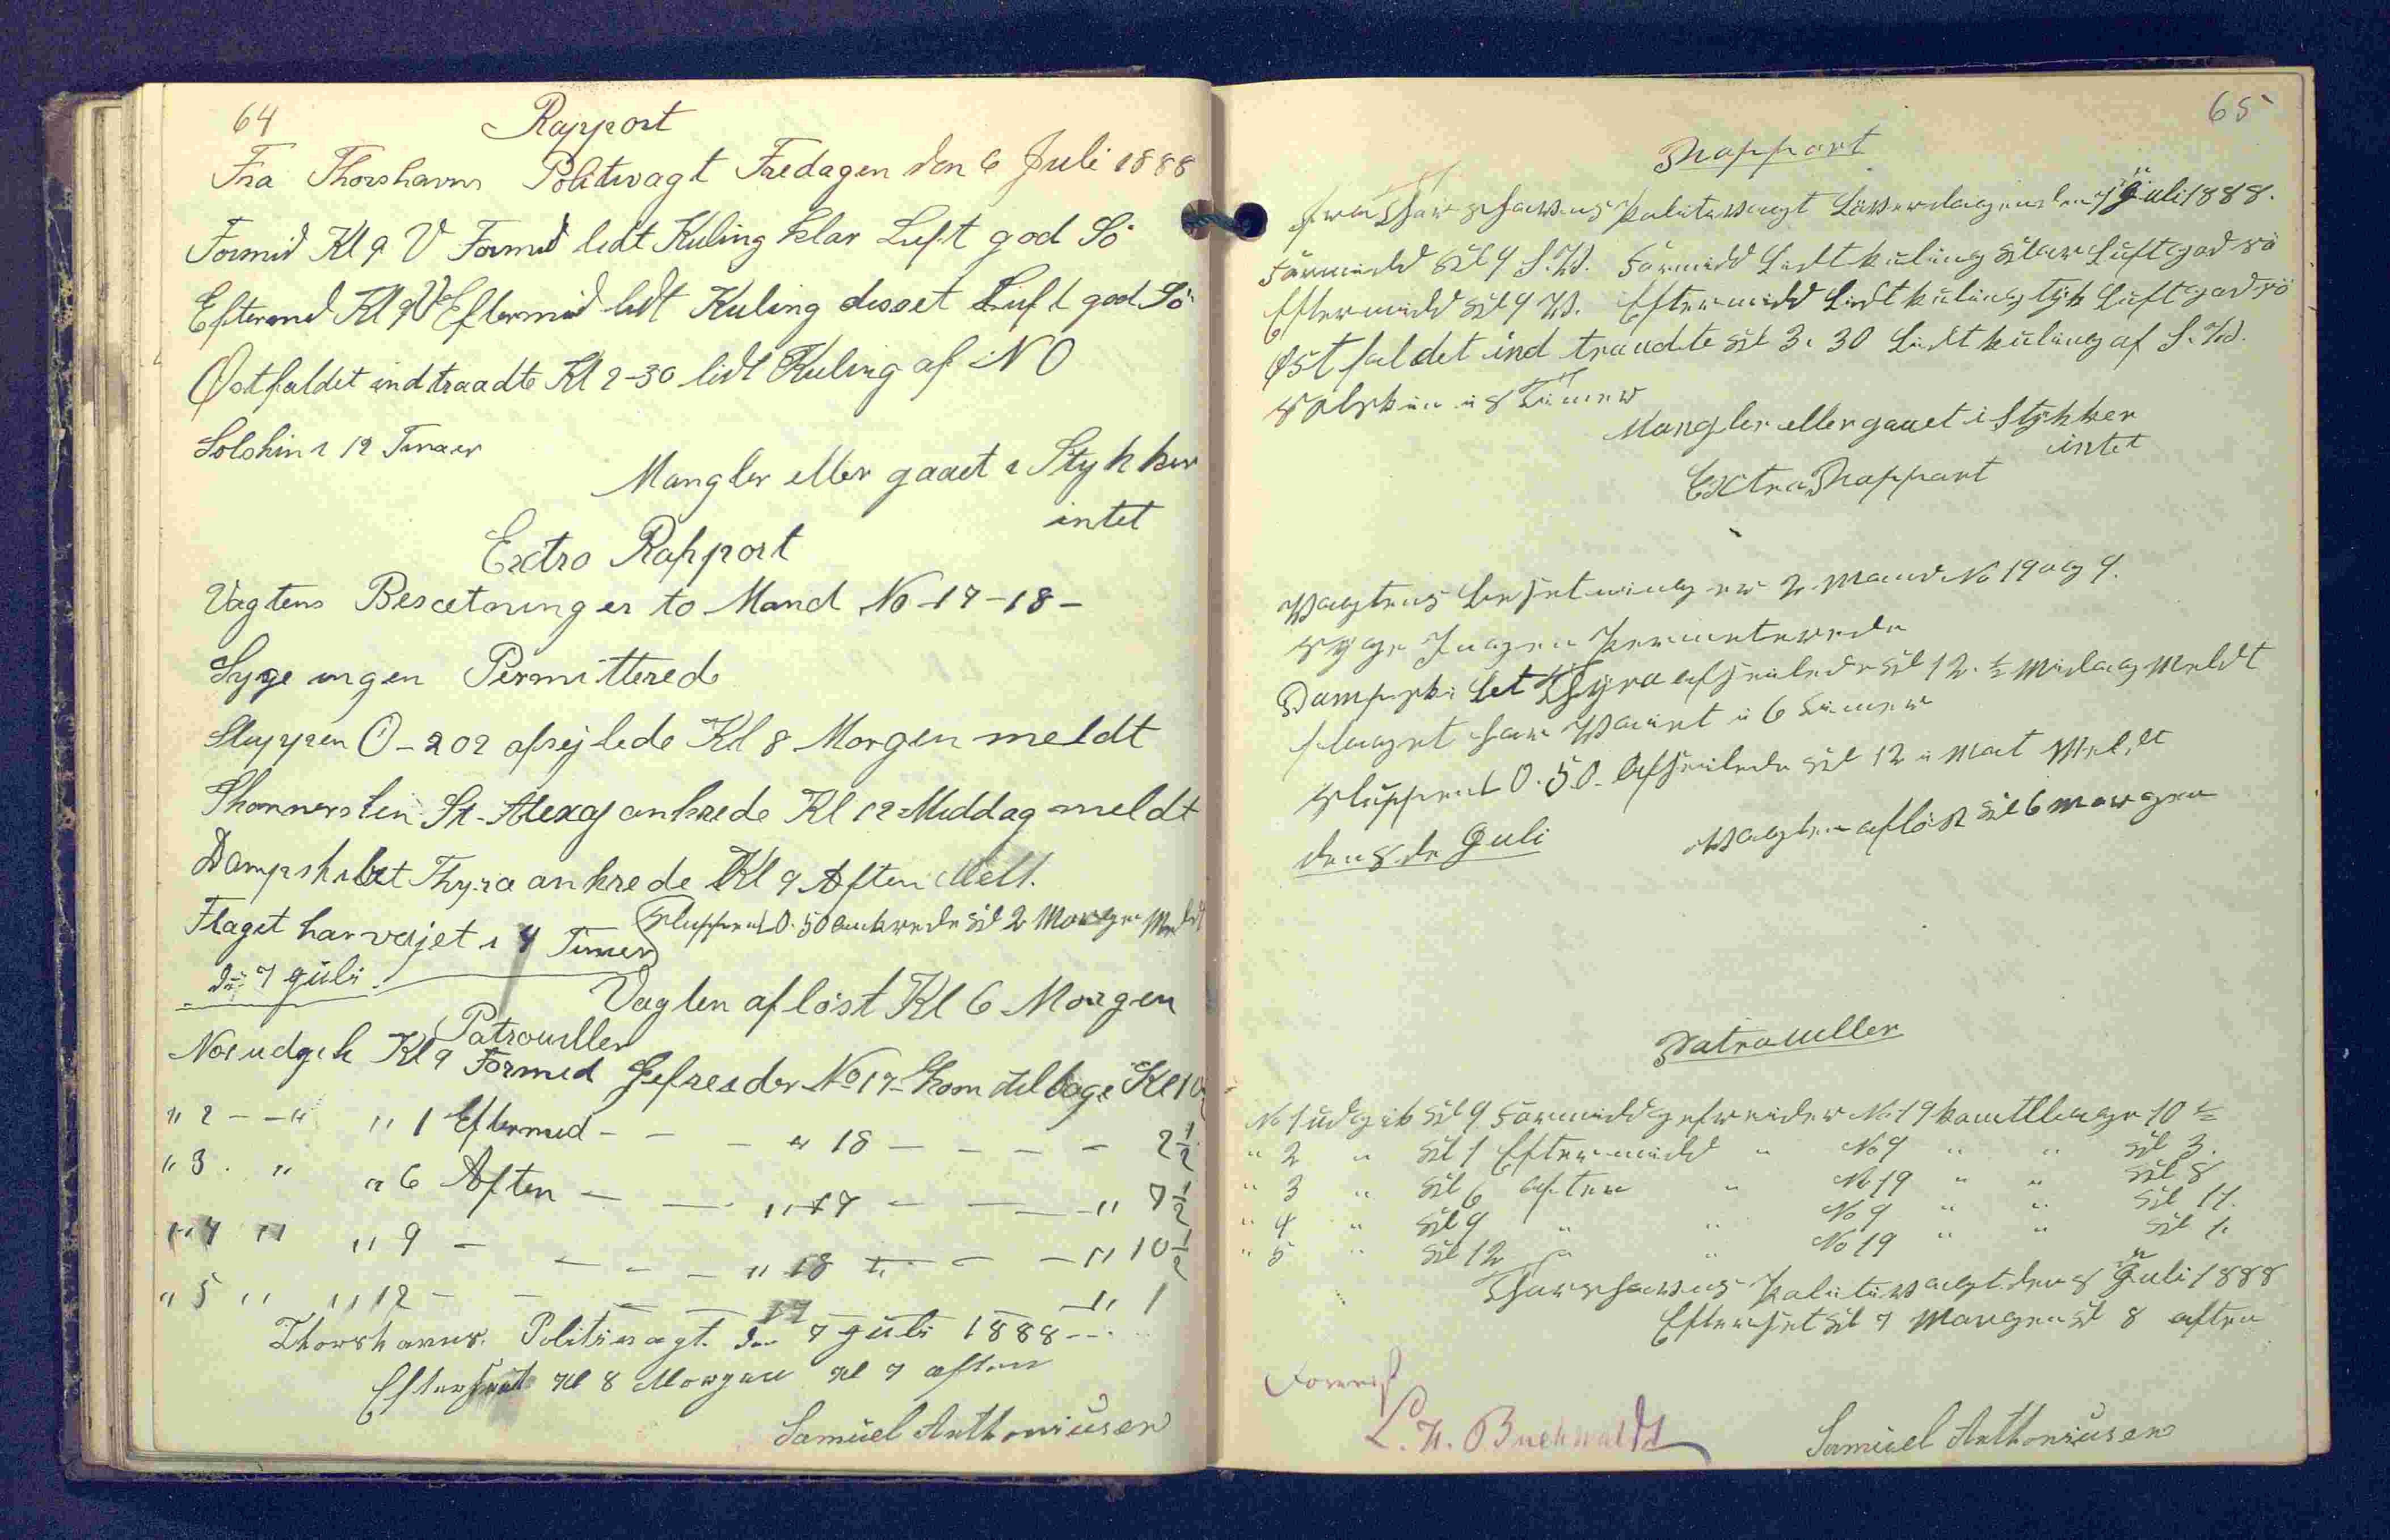 64
Rapport
Fra Thorshavns Politivagt Fredagen den 6 Juli 1888
Formid Kl 9 V Formid lidt Kuling klar Luft god Sö
Eftermd Kl 9 V Eftermid lidt Kuling disset Luft god Sö
Østfaldet indtraadte Kl 2-30 lidt Kuling af NO
Solskin i 12 Timer
Mangler eller gaaet i Stykker
intet
Extro Rapport
Vagtens Besætning er to Mand No 17-18-
Syge ingen Permittered
Sluppen O-202 afsejlede Kl 8 Morgen meldt
Skonnerten St. Alexaj ankrede Kl 12 Middag meldt
Dampskibet Thyra ankrede Kl 9 Aften Melt.
Sluppen O. 50 ankrede Kl 2 Morgen Meldt
Flaget har vejet i 4 Timer
den 7 Juli
Vagten aflöst Kl 6 Morgen
Patrouiller
No 1 udgik Kl 9 Formid Gefreider No 17 kom tilbage Kl 10
" 2 - - " " 1 Eftermed - - - " 18 - - - - 2½
" 3 . " " 6 Aften - - " 17 - - - " 7½
" 4 " " 9 - - - - " 18 " - - - " 10½
" 5 " " 12 - - - - 17 - " 1
Thorshavns Politivagt den 7 Juli 1888 -
Efterseet Kl 8 Morgen Kl 7 aften
Samuel Anthoniusen
65
Rapport
Fra Thorshavns Politivagt Löverdagen den 7 Juli 1888.
Formidd Kl 9 S.V. Formidd Lidt kuling klar Luft god sö
Eftermidd Kl 9 V. Eftermidd Lidt kuling tyk Luft god sö
Østfaldet indtraadte Kl 3.30 Lidt kuling af S.V.
Solskin i 8 Timer
Mangler eller gaaet i Stykker
intet
Extra Rapport
Vagtens Besetning er 2 Mand No 19 og 9.
Syge Ingen Permeterede
Dampskibet Thyra afseilede Kl 12.½ Midag Meldt
flaget har Vaiet i 6 Timer
Sluppen O. 50. Afseilede Kl 12 i Nat Meldt
den 8de Juli
Vagten aflöst Kl 6 morgen
Patrouller
No 1 udgik Kl 9 Formidd gefreider No 19 kom tilbage 10½
" 2 " Kl 1 Eftermidd " No 9 " " Kl 3.
" 3 " Kl 6 aften " No 19 " " Kl 8
" 4 " Kl 9 " " No 9 " " Kl 11.
" 5 " Kl 12 " " No 19 " " Kl 1.
Thorshavns Politivagt den 8 Juli 1888
Efterset Kl 7 Morgen Kl 8 aften
Forevist
L. H. Buchwaldt
Samuel Anthoniusen